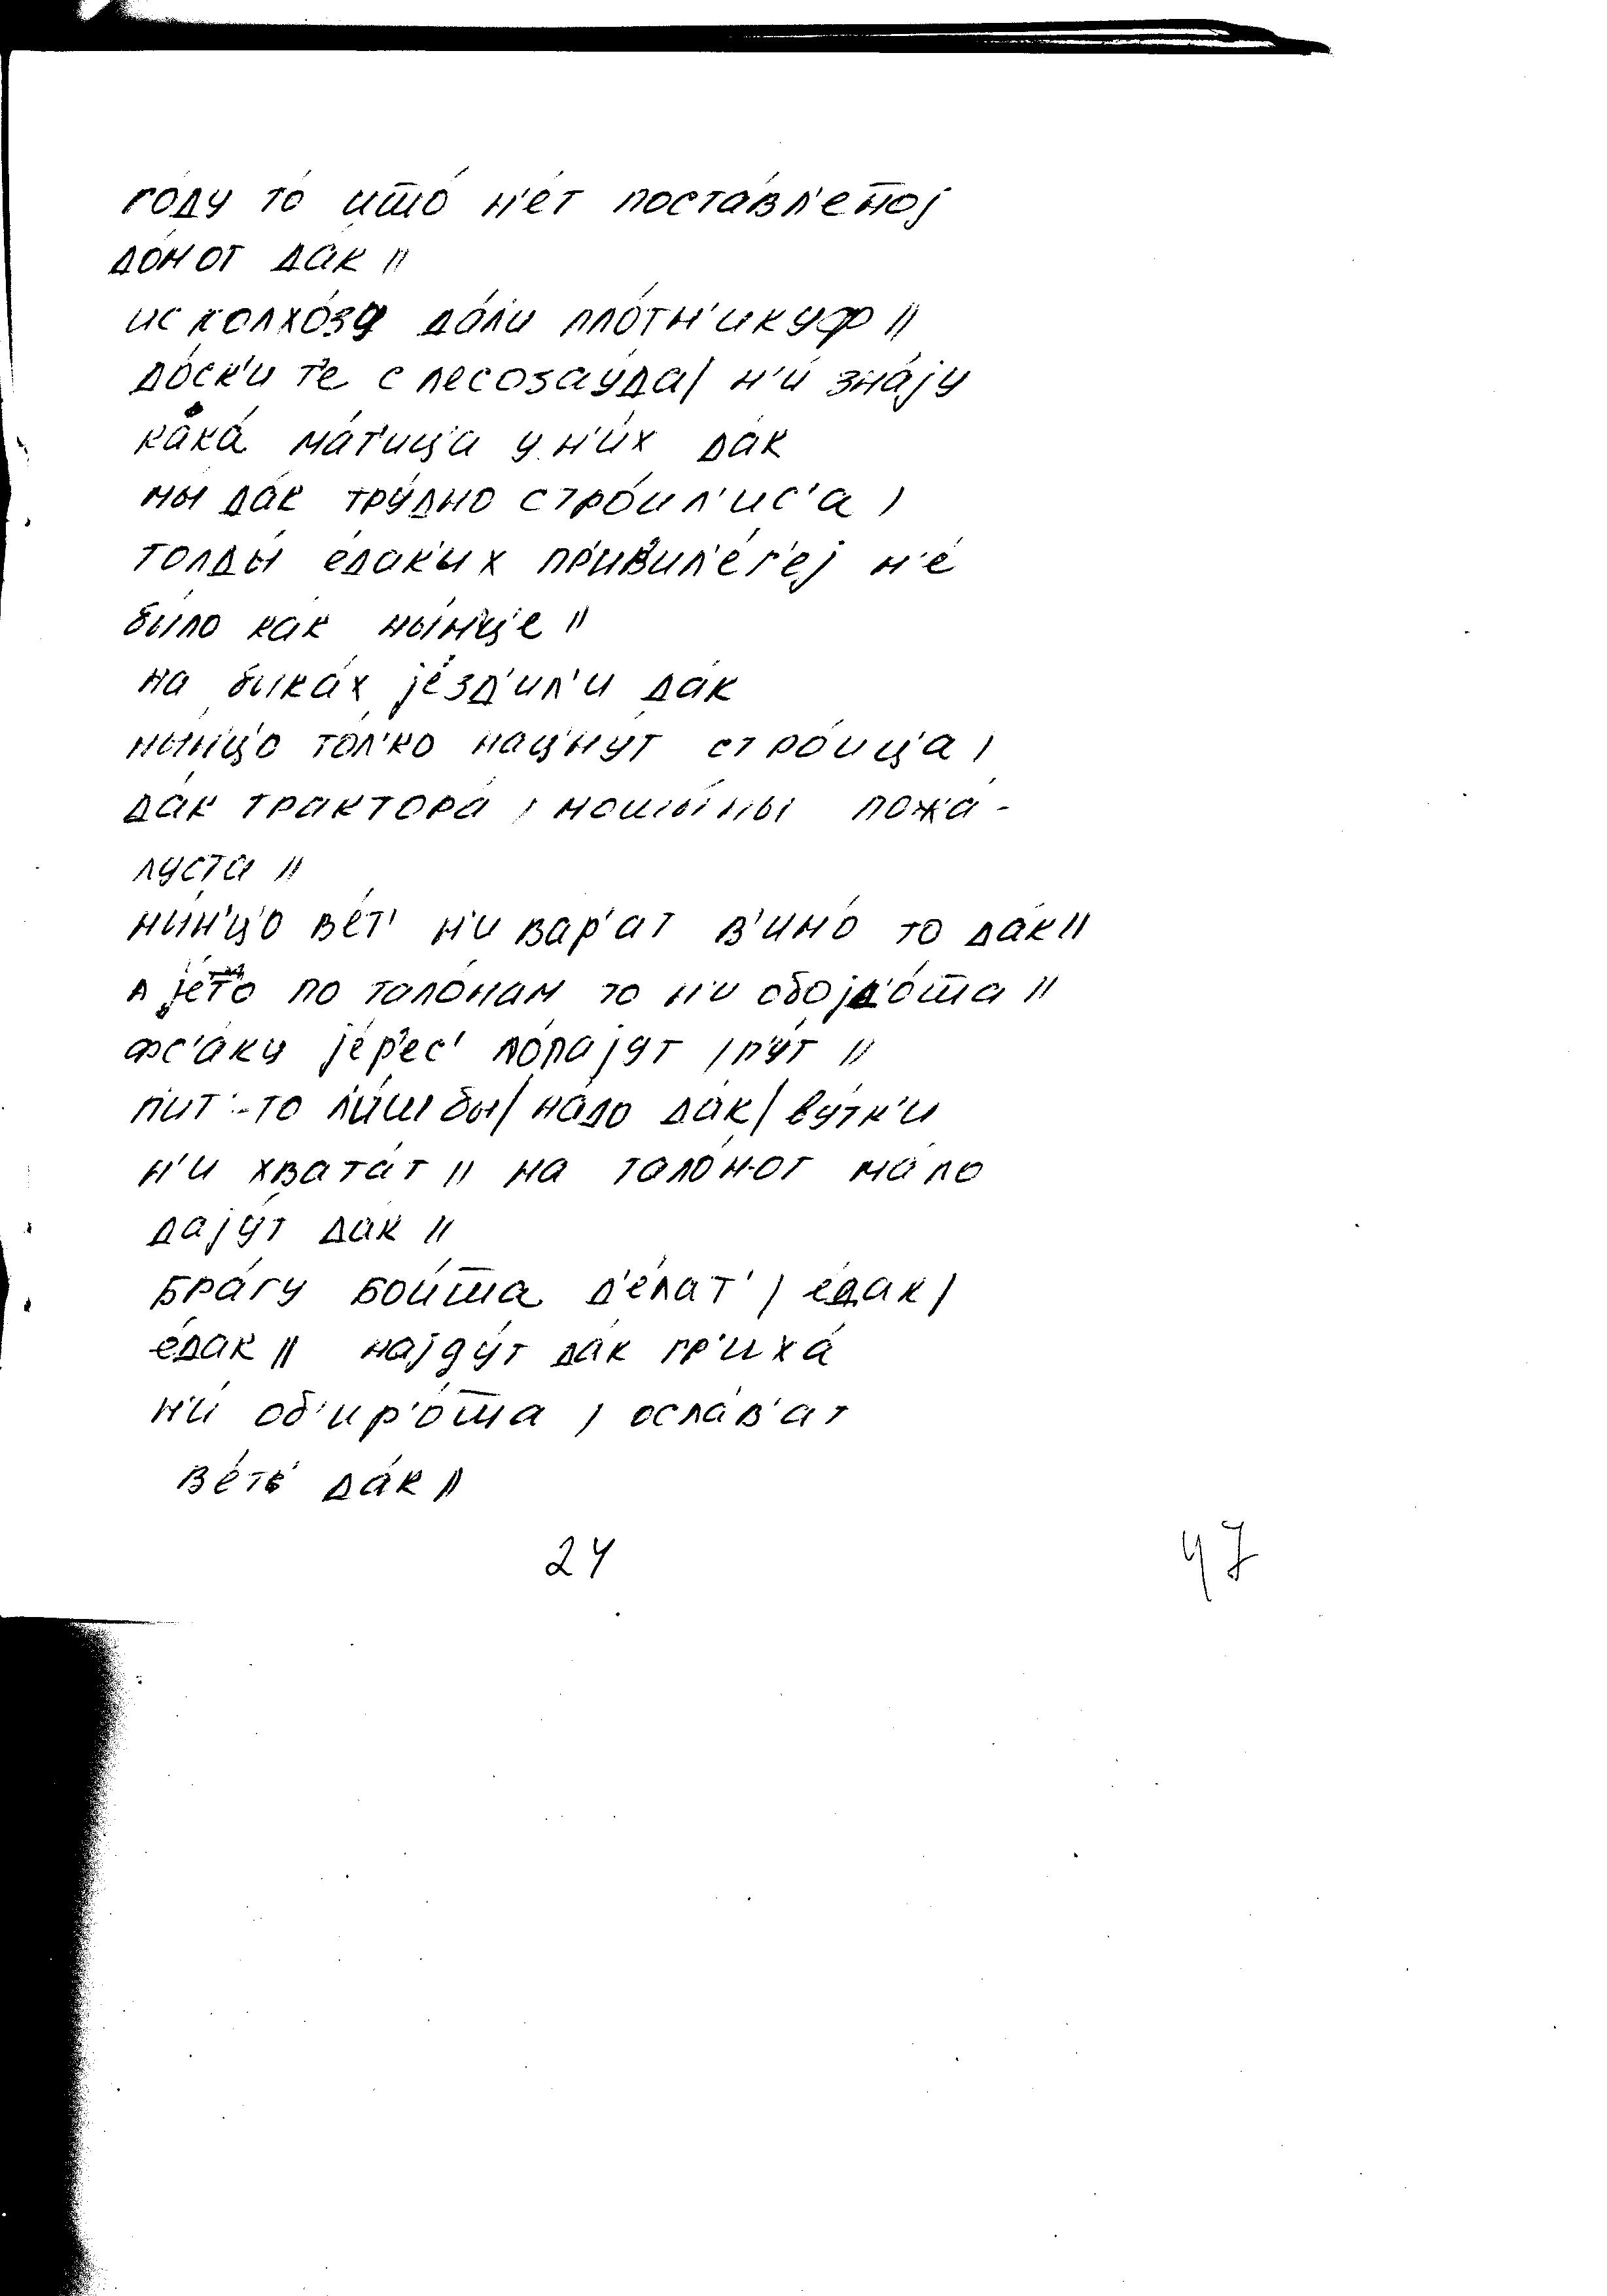 го́ду то́ ишо́ н'е́т поста́вл'ен̄ој
до́мот да́к ||
ис колхо́за да́ли пло́тн'икуф ||
до́ск'и т'е с лесозауда | н'и́ зна́ју
кака́ ма́т'иц'а у н'и́х да́к
мы да́к тру́дно стро́ил'ис'а |
толды́ е́дак'их пр'ив'ил'е́г'еј н'е́
было как ны́н'ц'е ||
на быка́х је́зд'ил'и да́к
ны́н'ц'о то́л'ко нац'ну́т стро́ица |
да́к трактора́ | мошы́ны пожа́-
луста ||
ны́н'ц'о ве́т' н'и вар'ат в'ино́ то да́к ||
а је́то по тало́нам то н'и обојд'о́ш̄а ||
фс'а́ку је́р'ес' ло́пајут | п'ју́т ||
пит'-то л'и́ш бы | на́до да́к | ву́тк'и
н'и хвата́т || на тало́н-от ма́ло
дају́т да́к ||
бра́гу бои́ш̄а д'е́лат' | е́дак |
е́дак || најду́т да́к гр'иха́
н'и́ об'ир'о́ш̄а | осла́в'ат
ве́ть да́к ||
24
47